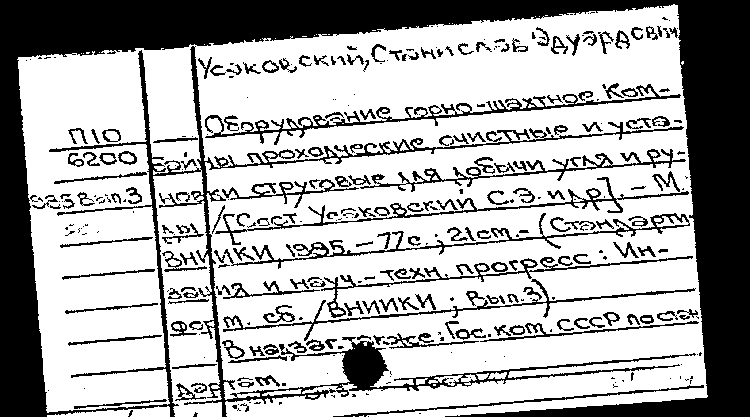 Усаковский, Станислав Эдуардович
П10
6200
985 Вып.3
Оборудование горно-шахтное. Ком-
байны проходческие, очистные и уста-
новки струговые для добычи угля и ру-
ды / [Сост. Усаковский С.Э. и др]. – М.:
ВНИИКИ, 1985. – 77 с.; 21 cm. – (Стандарти-
зация и науч.-техн. прогресс: Ин-
форм. сб. / ВНИИКИ; Вып.3).
В надзаг. также: Гос. ком. СССР по стан-
дартам.